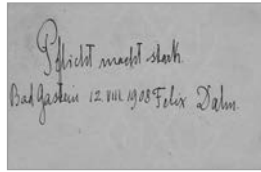 Pflicht macht stark.
Bad Gastein 12. VIII. 1908 Felix Dahn.